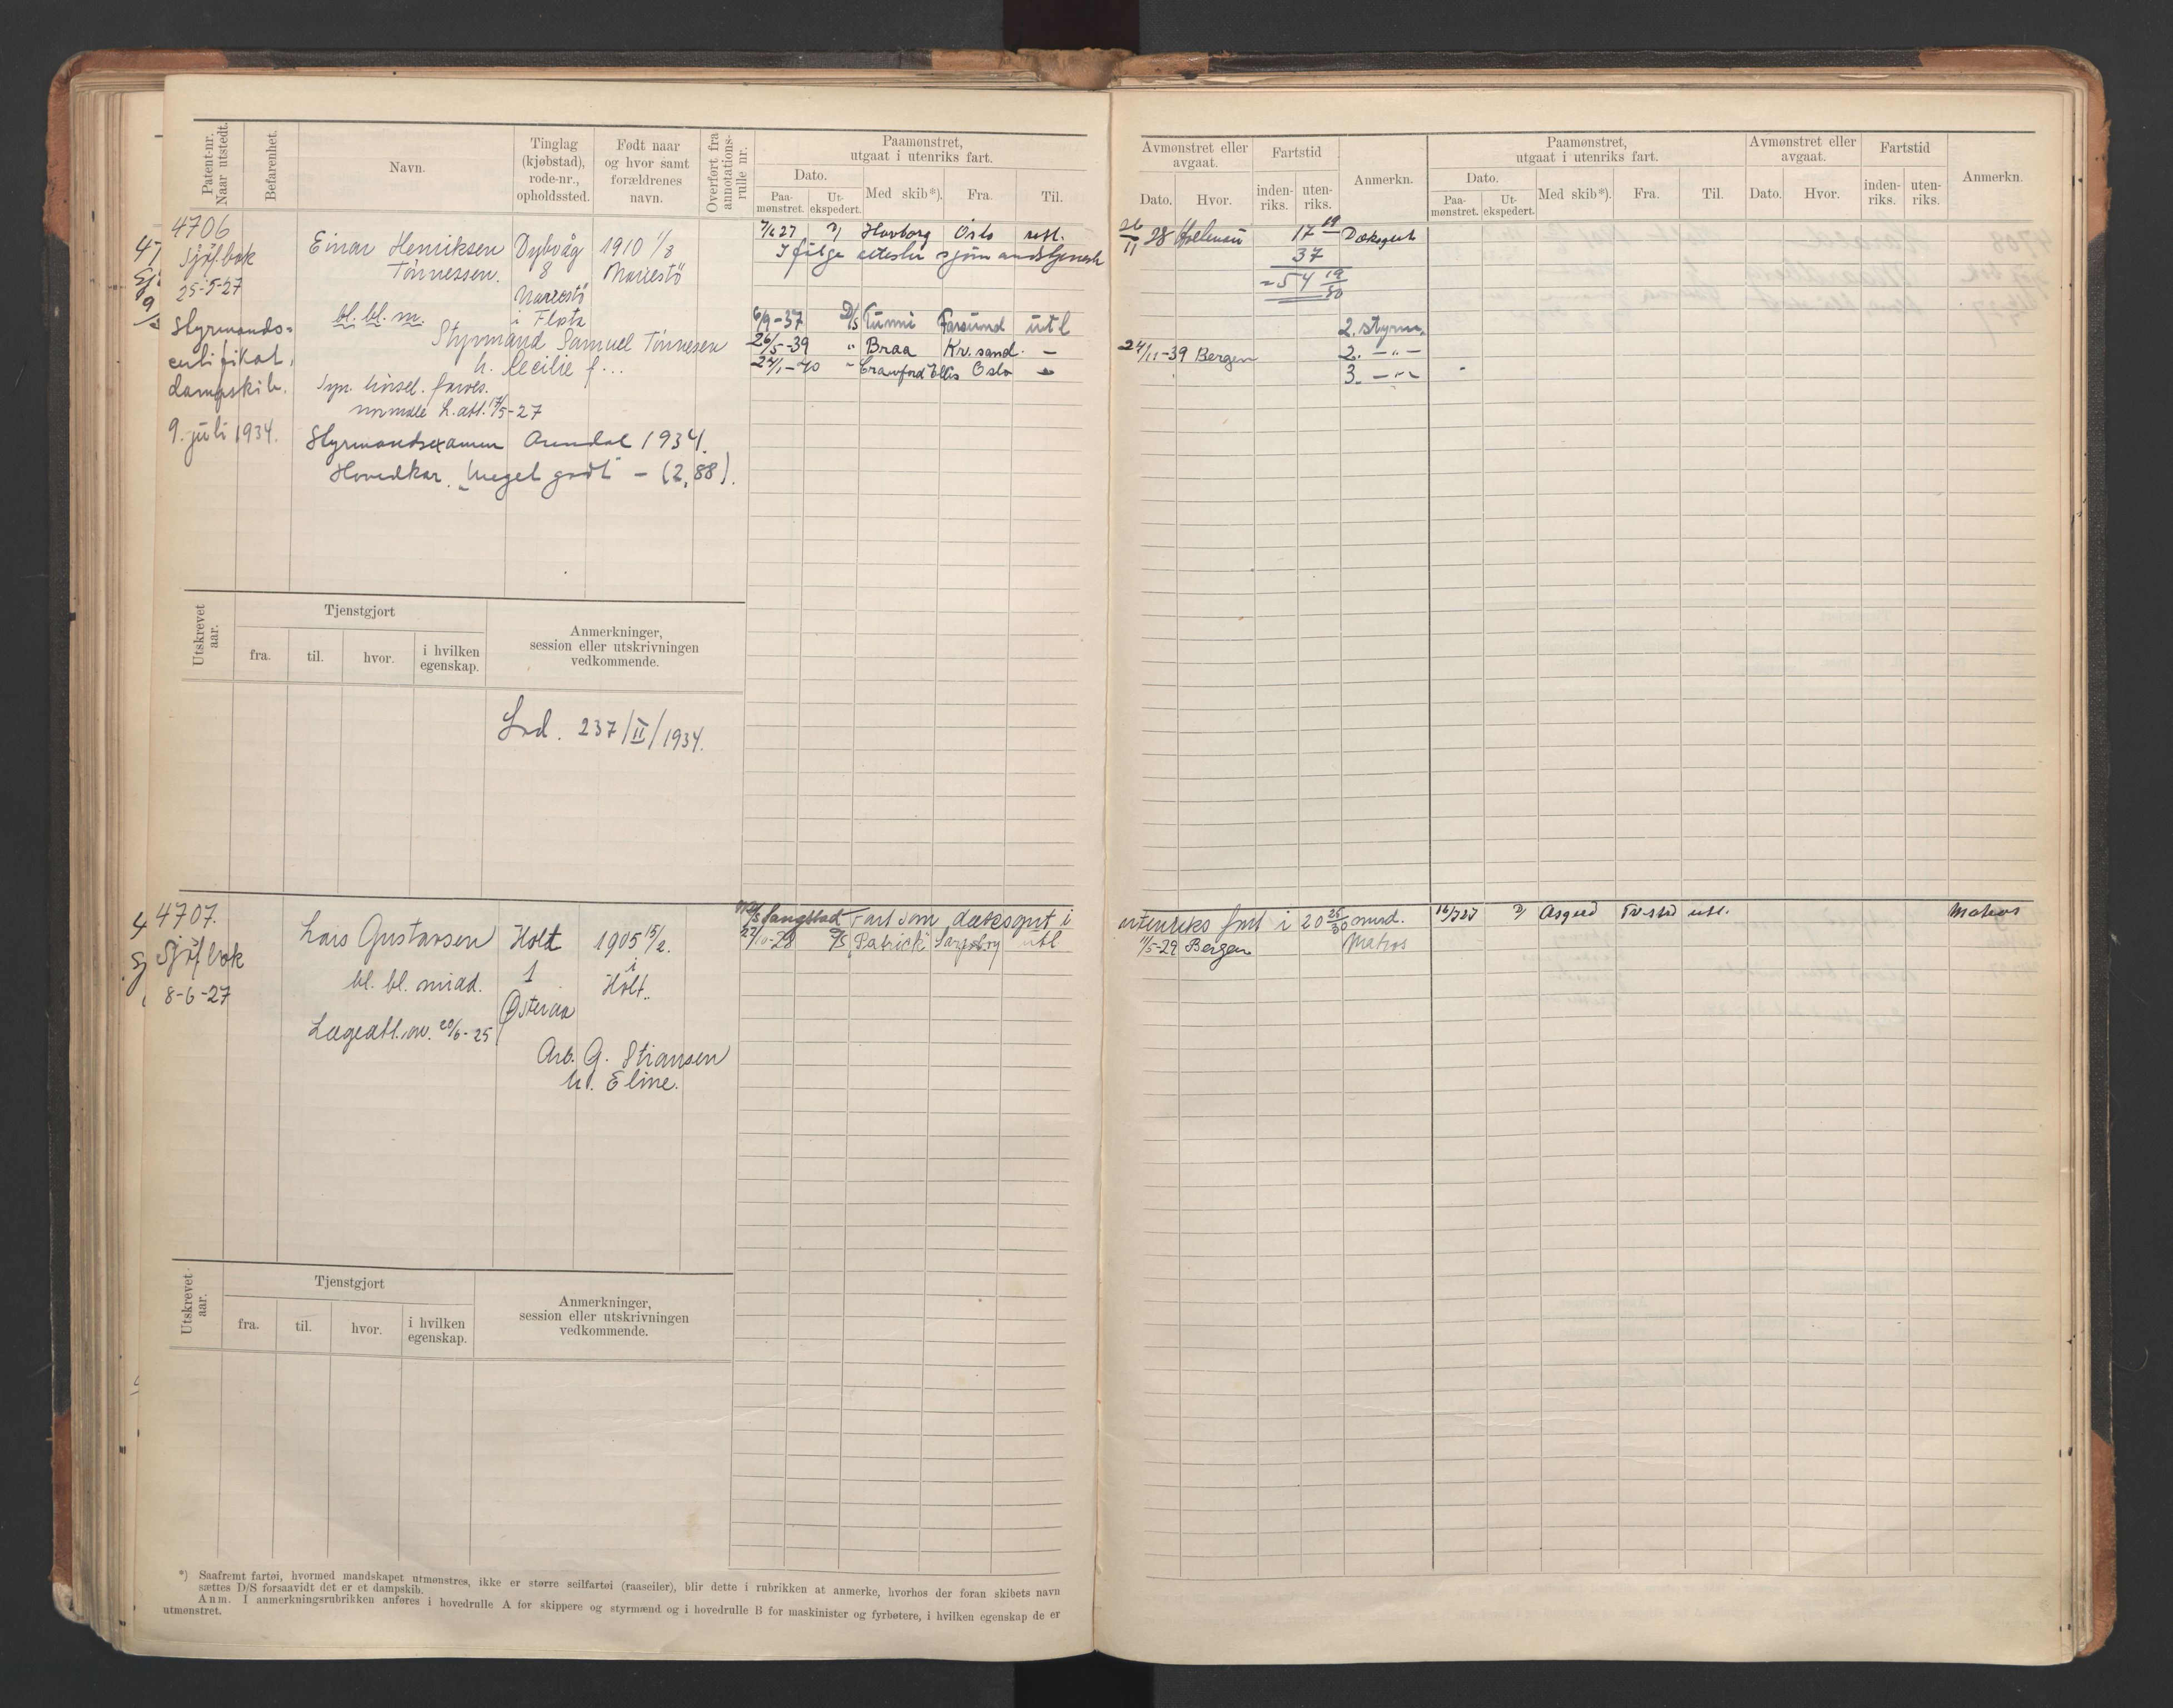 Patent-nr. Naar utstedt.
Befarenhet.
Navn.
Tinglag (kjøbstad), rode-nr., opholdssted.
Født naar og hvor samt forældrenes navn.
Overført fra annotations-rulle nr.
Paamønstret, utgaat i utenriks fart.
Dato.
Paa-mønstret.
Ut-ekspedert.
Med skib*).
Fra.
Til.
Avmønstret eller avgaat.
Dato.
Hvor.
Fartstid
inden-riks.
uten-riks.
Anmerkn.
Paamønstret, utgaat i utenriks fart.
Dato.
Paa-mønstret.
Ut-ekspedert.
Med skib*).
Fra.
Til.
Avmønstret eller avgaat.
Dato.
Hvor.
Fartstid
inden-riks.
uten-riks.
Anmerkn.
4706
Sjöf.bok
25-5-27
Styrmands=
certifikat,
dampskib.
9. juli 1934.
Einar Henriksen
Tönnessen.
bl. bl. m.
Dybvåg
8
Narestö
i Flosta
1910 1/8
Narestö
Styrmand Samuel Tönnesen
h. Cecilie f...
Syn. hörsel. farves.
normale L.att. 17/5-27
Styrmandsexamen Arendal 1934.
Hovedkar. "Meget godt" - (2,88).
7/6 27 Havborg Oslo utl.
Ifölge attester sjömandstjeneste
6/9-37 D/S Tunni Farsund utl
26/5-39 " Braa Kr.sand. -
24/1-40 - Crawford Ellis Oslo -
26/11 28 17 19 Dæksgut
37
= 54 19/30
2. styrm.
24/11-39 Bergen 2. -"-
3. -"-
Utskrevet aar.
Tjenstgjort
fra.
til.
hvor.
i hvilken egenskap.
Anmerkninger, session eller utskrivningen vedkommende.
Ld. 237/II/1934.
4707.
Sjöf.bok
8-6-27
Lars Gustavsen
bl. bl. miad.
Lægeatt. av. 20/6-25
Holt
1
Österaa
1905 15/2.
i
Holt.
Arb. G. Stiansen
h. Eline.
Fart som dæksgut i utenriks fart i 20 25/30 mnd.
27/10-28 D/S Patrick Sarpsborg utl
11/5-29 Bergen Matros
16/7 27 Asgerd Fr.stad utl. Matros
Utskrevet aar.
Tjenstgjort
fra.
til.
hvor.
i hvilken egenskap.
Anmerkninger, session eller utskrivningen vedkommende.
*) Saafremt fartøi, hvormed mandskapet utmønstres, ikke er større seilfartøi (raaseiler), blir dette i rubrikken at anmerke, hvorhos der foran skibets navn
sættes D/S forsaavidt det er et dampskib.
Anm. I anmerkningsrubrikken anføres i hovedrulle A for skippere og styrmænd og i hovedrulle B for maskinister og fyrbøtere, i hvilken egenskap de er
utmønstret.